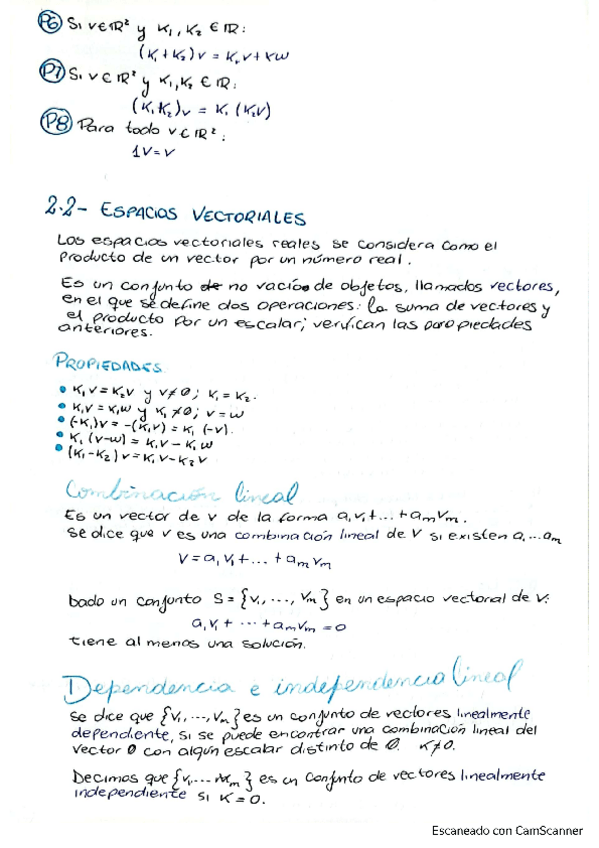 P6 Si v∈ℝ² y K₁, K₂ ∈ ℝ:
(K₁+K₂)v = K₁v + Kw
P7 Si v∈ℝ² y K₁,K₂ ∈ ℝ:
(K₁K₂)v = K₁ (K₂v)
P8 Para todo v∈ℝ²:
1v=v
2.2- ESPACIOS VECTORIALES
Los espacios vectoriales reales se considera como el
producto de un vector por un número real.
Es un conjunto de no vacíos de objetos, llamados vectores,
en el que se define dos operaciones: la suma de vectores y
el producto por un escalar; verifican las propiedades
anteriores.
PROPIEDADES
• K₁v = K₂v y v≠0; K₁ = K₂.
• K₁v = K₁w y K₁≠0; v = w
• (-K₁)v = -(K₁v) = K₁ (-v).
• K₁ (v-w) = K₁v - K₁w
• (K₁-K₂)v = K₁v - K₂v
Combinación lineal
Es un vector de v de la forma a₁v₁+...+amvm.
Se dice que v es una combinación lineal de V si existen a₁...am
V = a₁v₁+... + amvm
Dado un conjunto S = {v₁, ..., vm} en un espacio vectoral de V:
a₁v₁ + ... + amvm = 0
tiene al menos una solución.
Dependencia e independencia lineal
Se dice que {v₁,..., vm} es un conjunto de vectores linealmente
dependiente, si se puede encontrar una combinación lineal del
vector 0 con algún escalar distinto de 0. K≠0.
Decimos que {v₁... vm} es un conjunto de vectores linealmente
independiente si K = 0.
Escaneado con CamScanner